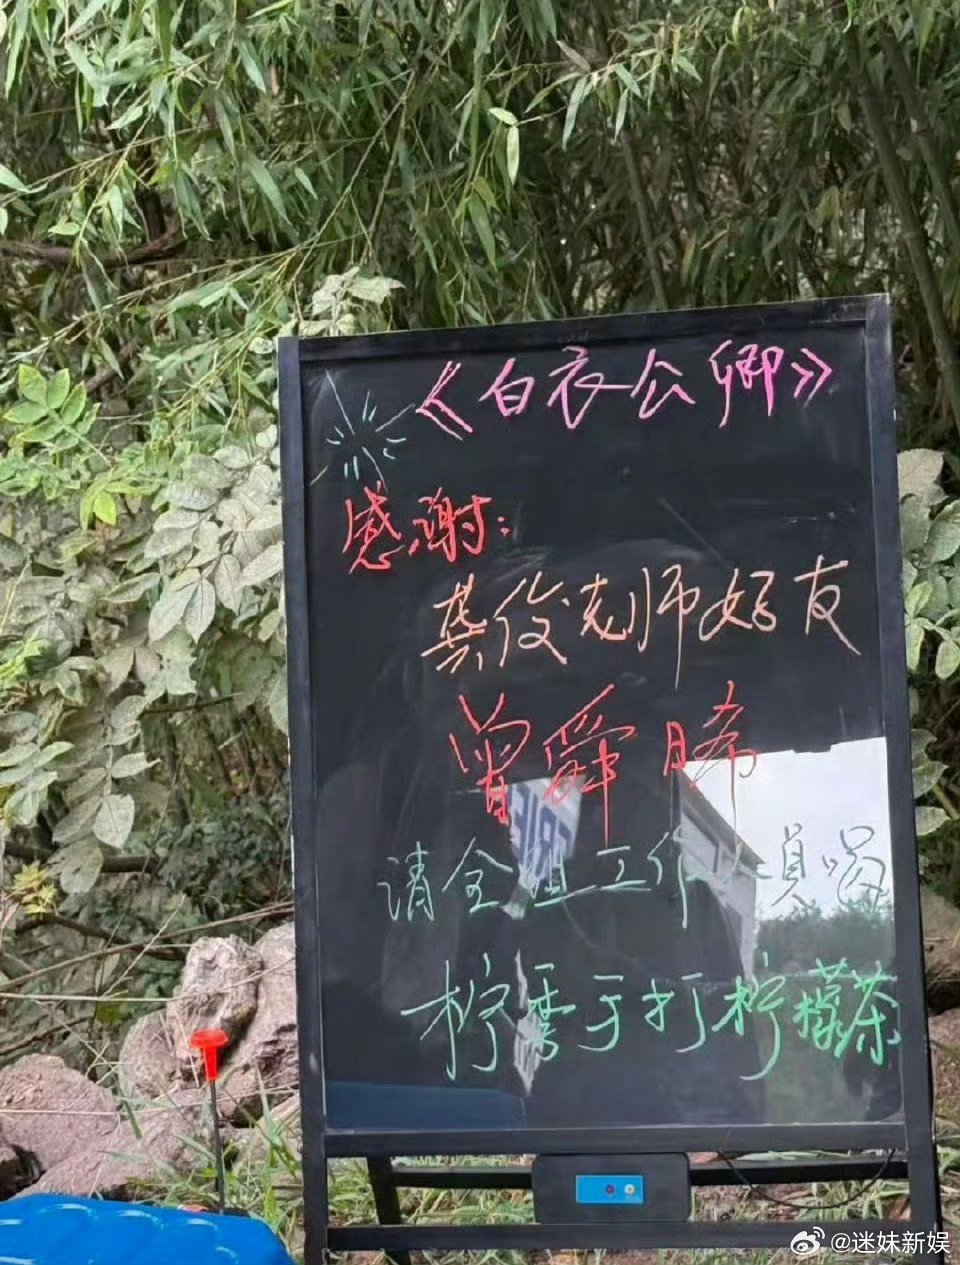 《白衣公卿》
感谢：
龚俊老师好友
曾舜晞
请全组工作人员喝
柠季手打柠檬茶
@迷妹新娱